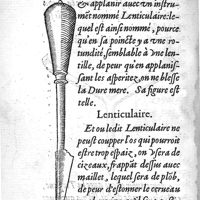 & applanir auec vn instru-
ment nommé Lenticulaire: le-
quel est ainsi nommé, pource
qu'en sa poincte y a vne ro-
tundité, semblable à vne len-
tille, de peur qu'en applanis-
sant les asperitez, on ne blesse
la Dure mere. Sa figure est
telle.
Lenticulaire.
Et ou ledit Lenticulaire ne
peust coupper l'os qui pourroit
estre trop espaiz, on vsera de
cizeaux, frappāt dessus auec vn
maillet, lequel sera de plōb,
de peur d'estonner le cerueau